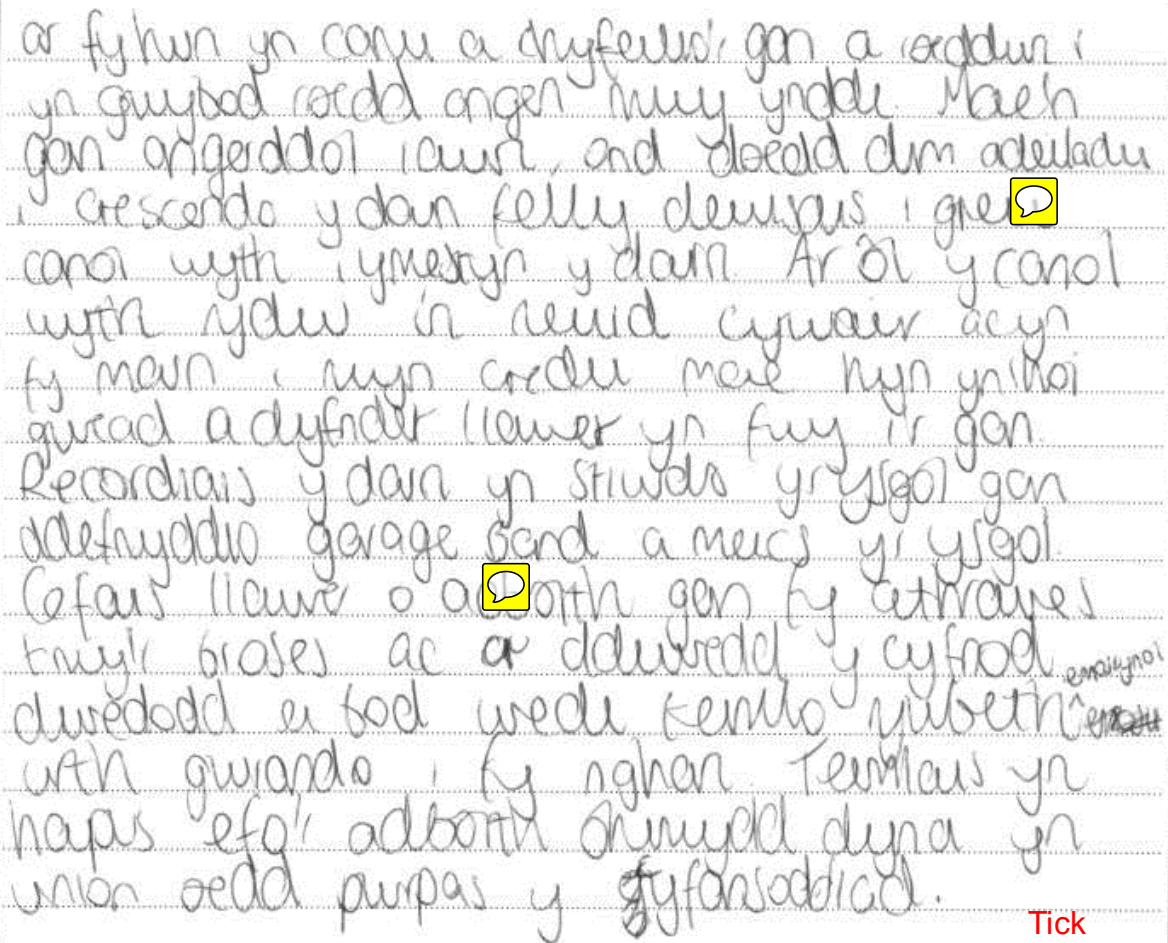 ar fy hun yn canu a chyfeilio'r gan a roeddwn i
yn gwybod roedd angen mwy ynddi. Mae'n
gan angerddol iawn, ond doedd dim adeiladu
i crescendo y darn felly dewisais i greu
canol wyth i ymestyn y darn. Ar ôl y canol
wyth rydw i'n newid cywair ac yn
fy marn i rwyn credu mae hyn yn rhoi
gwead a dyfnder llawer yn fwy i'r gan.
Recordiais y darn yn stiwdio yr ysgol gan
ddefnyddio garage band a meics yr ysgol.
Cefais llawer o adborth gan fy athrawes
trwy'r broses ac ar ddiwedd y cyfnod
dwedodd ei bod wedi teimlo rhibeth emosiynol
wrth gwrando i fy nghan. Teimlais yn
hapus efo'r adborth oherwydd dyna yn
union oedd pwrpas y gyfansoddiad.
Tick